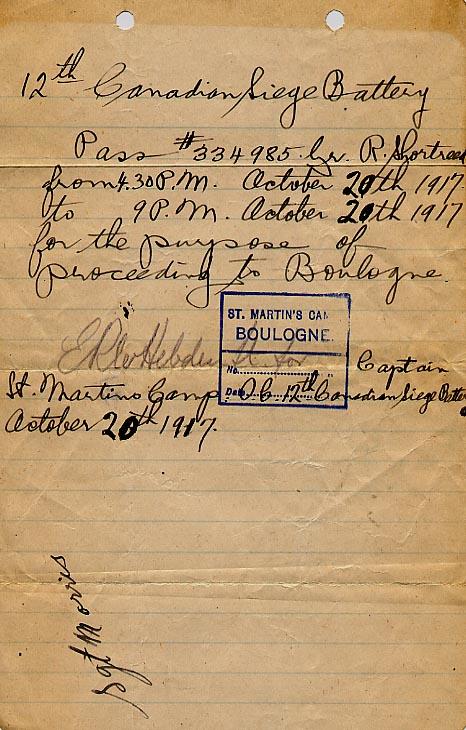 12th Canadian Siege Battery
Pass #334985. Gr. R. Shortreed
from 4.30 P.M. October 20th 1917
to 9 P.M. October 20th 1917
for the purpose of
proceeding to Boulogne.
ST. MARTIN'S CAM
BOULOGNE.
No.
Date
Hebden Lt for Captain
St. Martins Camp. O.C. 12th Canadian Siege Battery
October 20th 1917.
Sgt Morris